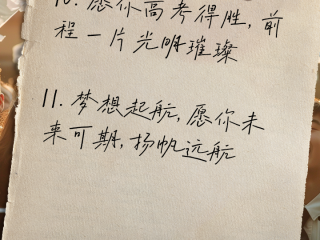 10. 愿你高考得胜, 前
程一片光明璀璨
11. 梦想起航, 愿你未
来可期, 扬帆远航